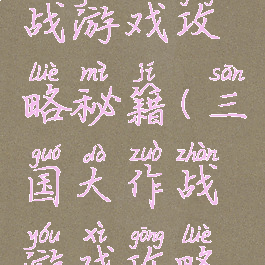 战游戏攻
lüè mì jí sān
略秘籍(三
guó dà zuò zhàn
国大作战
yóu xì gōng lüè
游戏攻略